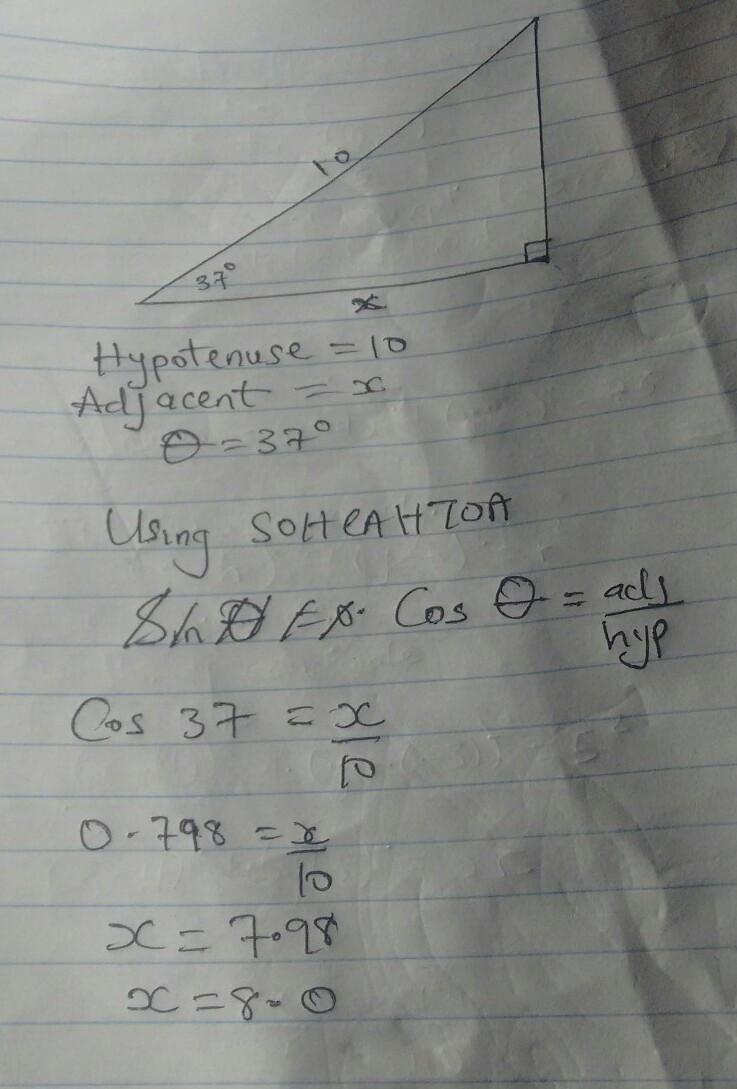 10
37°
x
Hypotenuse = 10
Adjacent = x
θ = 37°
Using SOHCAHTOA
Cos θ = adj/hyp
Cos 37 = x/10
0.798 = x/10
x = 7.98
x = 8.0